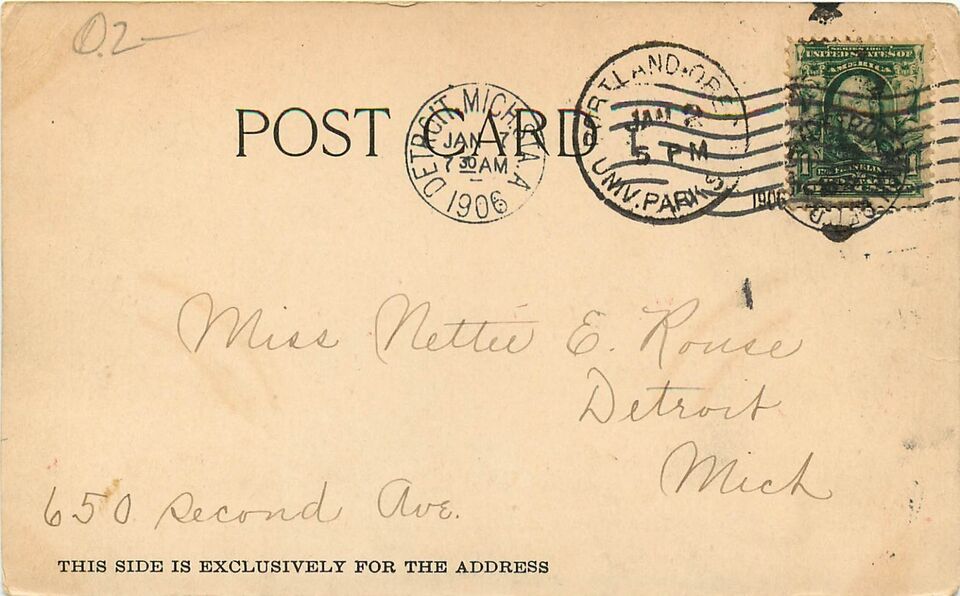 0.2—
SERIES 1902
UNITED STATES OF
AMERICA
POST CARD
DETROIT, MICH.
JAN 7
7 30 AM
1906
PORTLAND, OREG.
JAN 2
5 PM
UNIV. PARK S
1906
Miss Nettie E. Rouse
Detroit
Mich
650 Second Ave.
THIS SIDE IS EXCLUSIVELY FOR THE ADDRESS